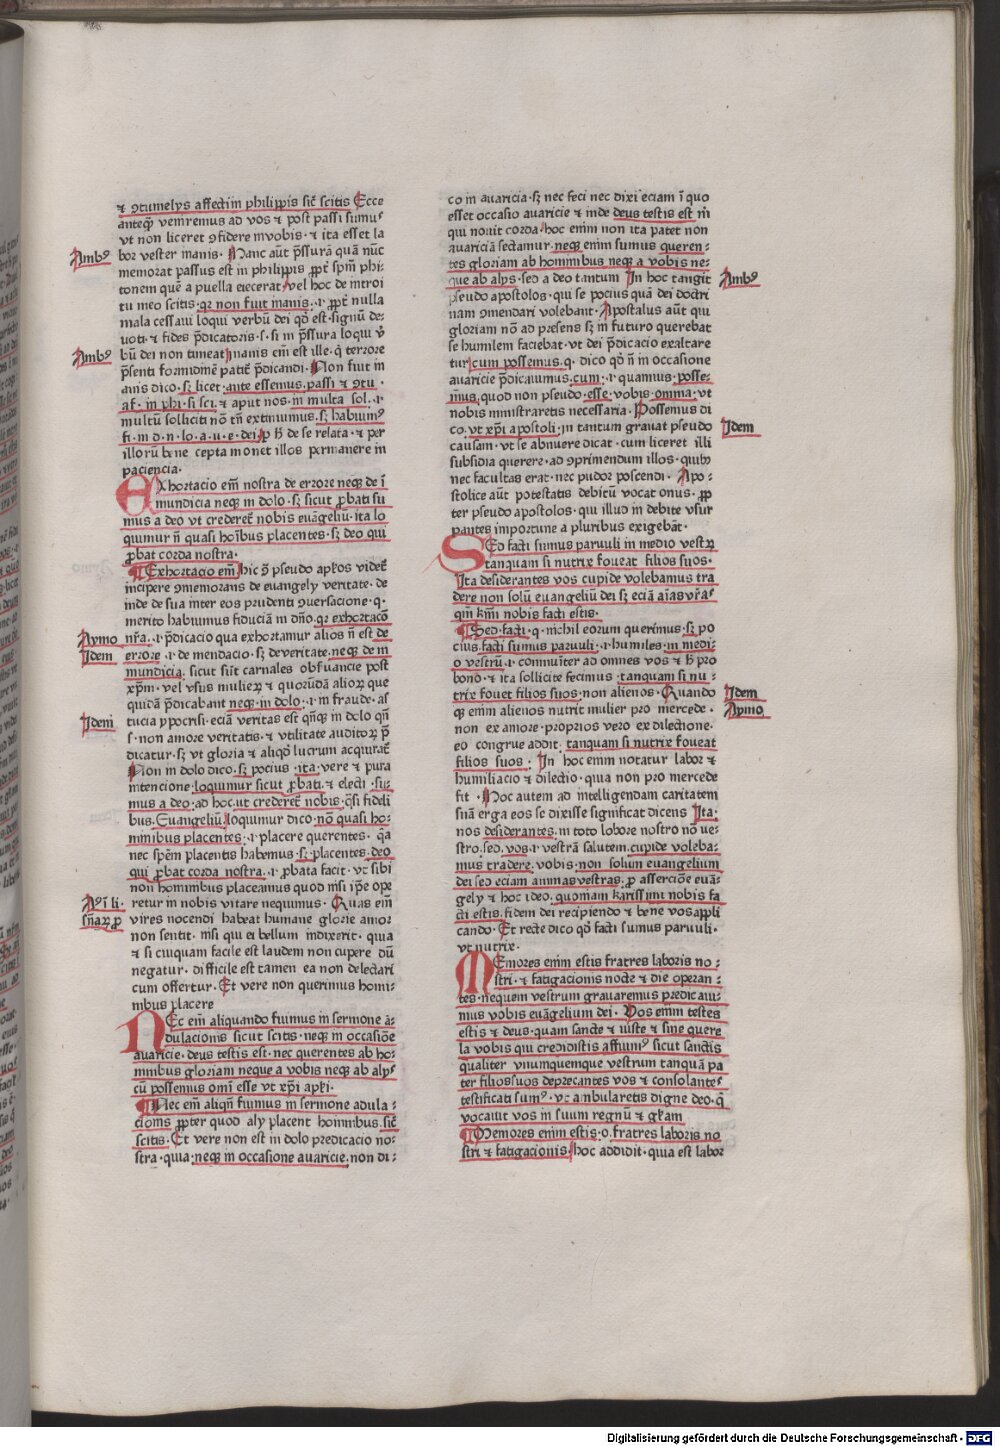 ⁊ ꝯtumelys affecti in philippis sic̄ scitis Ecce
anteq̄ veniremus ad vos ⁊ post passi sumus
vt non liceret ꝯfidere in vobis · ⁊ ita esset la
Ambꝰ
bor vester inanis · Hanc aut̄ p̄ssurā quā nūc
memorat passus est in philippis ꝓpt̄ sp̄m phi-
tonem quē a puella eiecerat vel hoc de introi
tu meo scitis · qr non fuit inanis · ı ꝓpt̄ nulla
mala cessaui loqui verbū dei qd̄ est · signū de-
uoti · ⁊ fides p̄dicatoris · s · si in p̄ssura loqui v̄
Ambꝰ
bū dei non timeat Inanis em̄ est ille · q̄ terrore
p̄senti formidine patit̄ p̄dicandi · Non fuit in
anis dico · sꝫ licet · ante essemus · passi ⁊ ꝯtu ·
af · in phi · si sci · ⁊ aput nos · in multa sol · ı
multū solliciti non tn̄ extinximus · sꝫ habuimꝰ
fi · in d · n · lo · a · u · e · dei · p h̄ de se relata · ⁊ per
illorū bene cepta monet illos permanere in
paciencia ·
Exhortacio em̄ nostra de errore neqꝫ de ī
mundicia neqꝫ in dolo · sꝫ sicut ꝓbati su
mus a deo vt crederet̄ nobis euāgeliū · ita lo
quimur n̄ quasi hoībus placentes · sꝫ deo qui
ꝓbat corda nostra ·
Exhortacio em̄ hic ꝯ̄ pseudo apl̄os videt̄
incipere ꝯmemorans de euangely veritate · de
inde de sua inter eos prudenti ꝯuersacione · q ·
merito habuimus fiduciā in dn̄o · qr exhortacō
Aymo
nr̄a · ı · p̄dicacio qua exhortamur alios n̄ est de
Idem
errore · ı · de mendacio · sꝫ de veritate · neqꝫ de in
mundicia · sicut sūt carnales obseruancie post
xp̄m · vel vsus mulierꝫ ⁊ quorūdā aliorꝫ que
quidā p̄dicabant neqꝫ in dolo · ı · in fraude · as
Idem
tucia ypocrisi · eciā veritas est qn̄qꝫ in dolo qn̄
s · non amore veritatis · ⁊ vtilitate auditorꝫ p̄
dicatur · sꝫ vt gloria ⁊ aliqd̄ lucrum acquirat̄
Non in dolo dico · sꝫ pocius · ita · vere ⁊ pura
intencione · loquimur sicut ꝓbati · ⁊ electi · su-
mus a deo · ad hoc · ut crederet̄ nobis · q̄si fideli
bus · Euangeliū · loquimur dico · nō quasi ho-
minibus placentes · ı placere querentes · q̄a
nec spēm placentis habemus · sꝫ placentes · deo
qui ꝓbat corda nostra · ı · ꝓbata facit · vt sibi
non hominibus placeamus quod nisi ip̄e ope
retur in nobis vitare nequimus · Quas em̄
vires nocendi habeat humane glorie amor
non sentit · nisi qui ei bellum indixerit · quia
⁊ si cuiquam facile est laudem non cupere dū
negatur · difficile est tamen ea non delectari
cum offertur · Et vere non querimus homi-
nibus placere
Nec em̄ aliquando fuimus in sermone a-
dulacionis sicut scitis · neqꝫ in occasiōe
auaricie · deus testis est · nec querentes ab ho-
minibus gloriam neque a vobis neqꝫ ab alys
cū possemus om̄i esse vt xp̄i apl̄i ·
Nec em̄ aliqn̄ fuimus in sermone adula-
cionis ꝓpter quod aly placent hominibus · sic̄
scitis · Et vere non est in dolo predicacio no-
stra · quia · neqꝫ in occasione auaricie · non di-
co in auaricia · sꝫ nec feci nec dixi eciam ī quo
esset occasio auaricie ⁊ inde deus testis est m̄
qui nouit corda · hoc enim non ita patet non
auariciā sectamur · neqꝫ enim sumus queren-
tes gloriam ab hominibus neqꝫ a vobis ne-
que ab alys · sed a deo tantum In hoc tangit
Ambꝰ
pseudo apostolos · qui se pocius quā dei doctri
nam ꝯmendari volebant · Apostalus aūt qui
gloriam nō ad presens sꝫ in futuro querebat
se humilem faciebat · vt dei p̄dicacio exaltare
tur · cum possemus · q · dico qd̄ n̄ in occasione
auaricie p̄dicauimus · cum · ı · quamuis · posse-
mus · quod non pseudo · esse · vobis · onina · vt
nobis ministraretis necessaria · Possemus di
co · vt xp̄i apostoli · in tantum grauat pseudo
Idem
causam · vt se abnuere dicat · cum liceret illi
subsidia querere · ad ꝯprimendum illos · quibꝫ
nec facultas erat · nec pudor poscendi · Apo-
stolice aūt potestatis debitū vocat onus · ꝓp
ter pseudo apostolos · qui illud in debite vsur
pantes importune a pluribus exigebāt ·
Sed facti sumus paruuli in medio vestrꝫ
tanquam si nutrix foueat filios suos ·
Ita desiderantes vos cupide volebamus tra
dere non solū euangeliū dei sꝫ eciā aīas vr̄as
qm̄ kmī nobis facti estis ·
Sed · facti · q · nichil eorum querimus · sꝫ po
cius · facti sumus paruuli · ı humiles · in medi-
o vestrū · ı conmuniter ad omnes vos ⁊ h̄ pro
bono · ⁊ ita sollicite fecimus · tanquam si nu-
trix fouet filios suos · non alienos · Quando
Idem
qꝫ enim alienos nutrit mulier pro mercede ·
Aymo
non ex amore · proprios vero ex dilectione ·
eo congrue addit · tanquam si nutrix foueat
filios suos · In hoc enim notatur labor ⁊
humiliacio ⁊ dilectio · qua non pro mercede
fit · Hoc autem ad intelligendam caritatem
suā erga eos se dixisse significat dicens Ita ·
nos desiderantes · in toto lobore nostro nō ve-
stro · sed · vos · ı vestrā salutem · cupide voleba-
mus tradere · vobis · non solum euangelium
dei sed eciam animas vestras · ꝓ assercioē euā-
gely ⁊ hoc ideo · quoniam karissimi nobis fa
cti estis · fidem dei recipiendo ⁊ bene vos appli
cando · Et recte dico qd̄ facti sumus paruuli ·
vt nutrix ·
Memores enim estis fratres laboris no-
stri · ⁊ fatigacionis nocte ⁊ die operan-
tes · nequem vestrum grauaremus predicaui-
mus vobis euāgelium dei · Vos enim testes
estis ⁊ deus · quam sancte ⁊ iuste ⁊ sine quere
la vobis qui credidistis affuimꝰ sicut sanctis
qualiter vnumquemque vestrum tanquā pa
ter filios suos deprecantes vos ⁊ consolantes
testificati sumꝰ · vt ambularetis digne deo · q̄
vocauit vos in suum regnū ⁊ gl̄am
Memores enim estis · o · fratres laboris no
stri ⁊ fatigacionis · hoc addidit · quia est labor
Digitalisierung gefördert durch die Deutsche Forschungsgemeinschaft · DFG